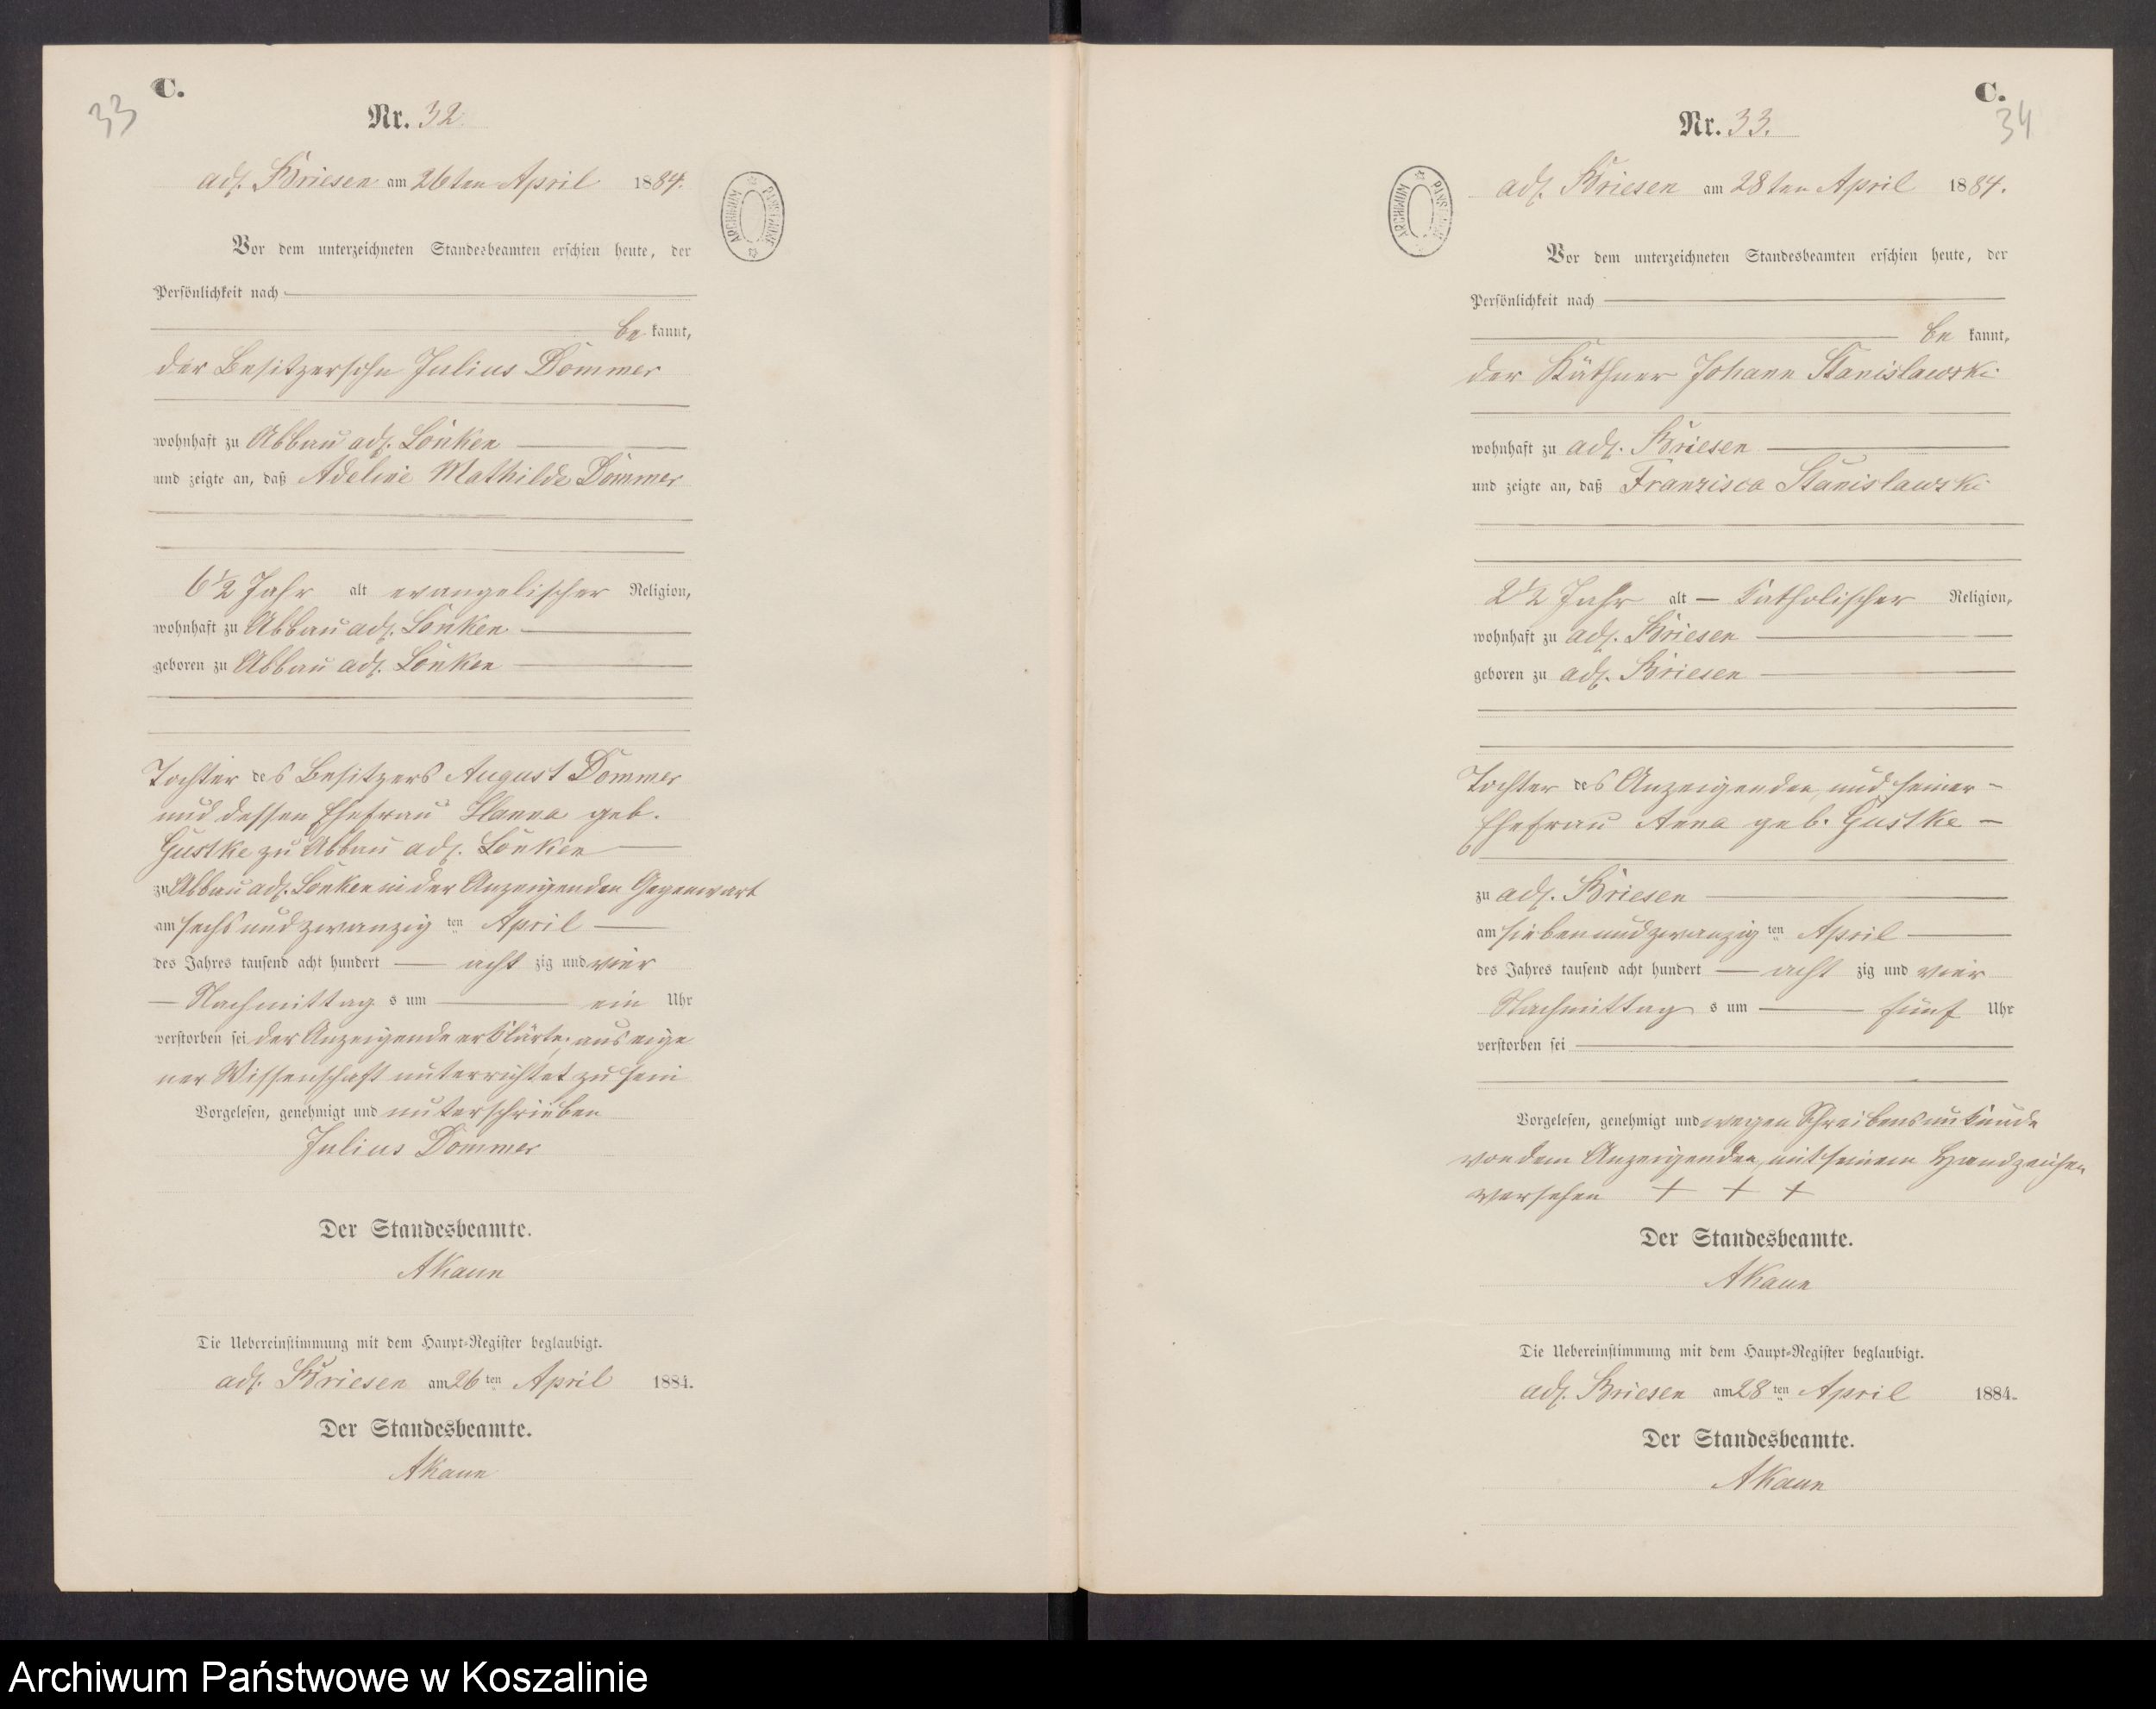 33
C.
Nr. 32.
adl. Briesen am 26ten April 1884.
ARCHIWUM PAŃSTWOWE
Vor dem unterzeichneten Standesbeamten erschien heute, der
Persönlichkeit nach
be kannt,
der Besitzersohn Julius Dommer
wohnhaft zu Abbau adl. Lonken
und zeigte an, daß Adeline Mathilde Dommer
6 1/2 Jahr alt evangelischer Religion,
wohnhaft zu Abbau adl. Lonken
geboren zu Abbau adl. Lonken
Tochter des Besitzers August Dommer
und dessen Ehefrau Hanna geb.
Gustke zu Abbau adl. Lonken
zu Abbau adl. Lonken in der Anzeigenden Gegenwart
am sechs und zwanzig ten April
des Jahres tausend acht hundert acht zig und vier
Nachmittag s um ein Uhr
verstorben sei der Anzeigende erklärte, aus eige
ner Wissenschaft unterrichtet zu sein
Vorgelesen, genehmigt und unterschrieben
Julius Dommer
Der Standesbeamte.
AKaun
Die Uebereinstimmung mit dem Haupt-Register beglaubigt.
adl. Briesen am 26 ten April 1884.
Der Standesbeamte.
AKaun
C.
34
Nr. 33.
adl. Briesen am 28ten April 1884.
ARCHIWUM PAŃSTWOWE
Vor dem unterzeichneten Standesbeamten erschien heute, der
Persönlichkeit nach
be kannt,
der Käthner Johann Stanislawski
wohnhaft zu adl. Briesen
und zeigte an, daß Franzisca Stanislawski
2 1/2 Jahr alt – katholischer Religion,
wohnhaft zu adl. Briesen
geboren zu adl. Briesen
Tochter des Anzeigenden und seiner –
Ehefrau Anna geb. Gustke –
zu adl. Briesen
am sieben und zwanzig ten April
des Jahres tausend acht hundert acht zig und vier
Nachmittag s um fünf Uhr
verstorben sei
Vorgelesen, genehmigt und wegen Schreibensunkunde
von dem Anzeigenden mit seinem Handzeichen
versehen + + +
Der Standesbeamte.
AKaun
Die Uebereinstimmung mit dem Haupt-Register beglaubigt.
adl. Briesen am 28 ten April 1884.
Der Standesbeamte.
AKaun
Archiwum Państwowe w Koszalinie